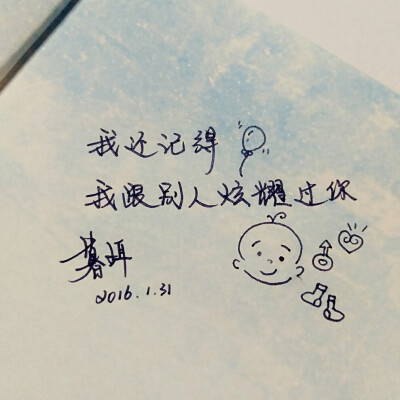 我还记得
我跟别人炫耀过你
2016.1.31